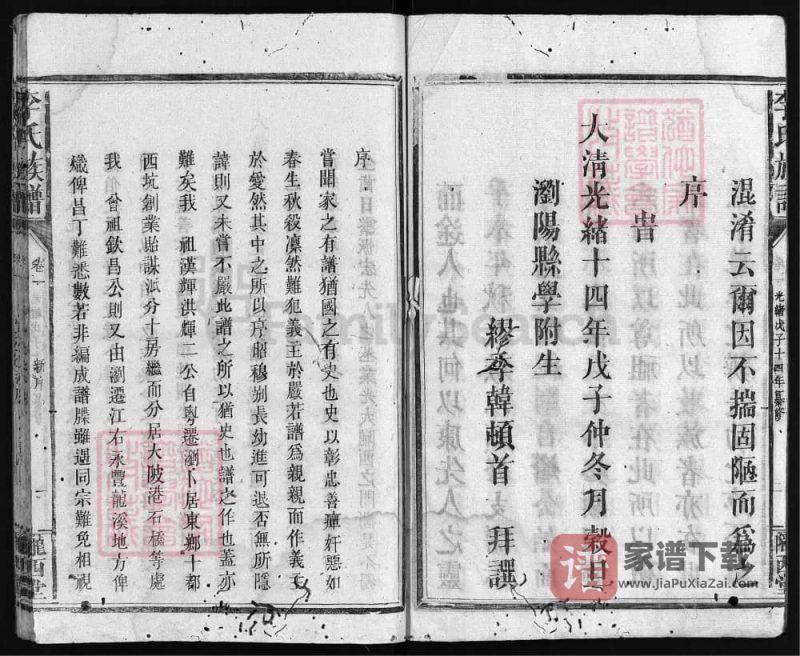 混淆云爾因不揣固陋而為之
序
旹
大清光緒十四年戊子仲冬月穀旦
瀏陽縣學附生
繆季韓頓首 拜譔
李氏族譜
卷
光緒戊子十四年纂修
隴西堂
序
嘗聞家之有譜猶國之有史也史以彰忠善癉奸惡如
春生秋殺凜然難犯義主於嚴若譜為親親而作義主
於愛然其中之所以序昭穆別長幼進可退否無所隱
諱則又未嘗不嚴此譜之所以猶史也譜之作也蓋亦
難矣我 祖漢輝洪輝二公自粵遷瀏卜居東鄉十都
西坑創業貽謀派分十房繼而分居大陂港石橋等處
我 曾祖欽昌公則又由瀏遷江右永豐龍溪地方俾
熾俾昌丁難悉數若非編成譜牒雖遇同宗難免相視
李氏族譜
卷
隴西堂
FamilySearch
譜
家谱下载
www.JiaPuXiaZai.com